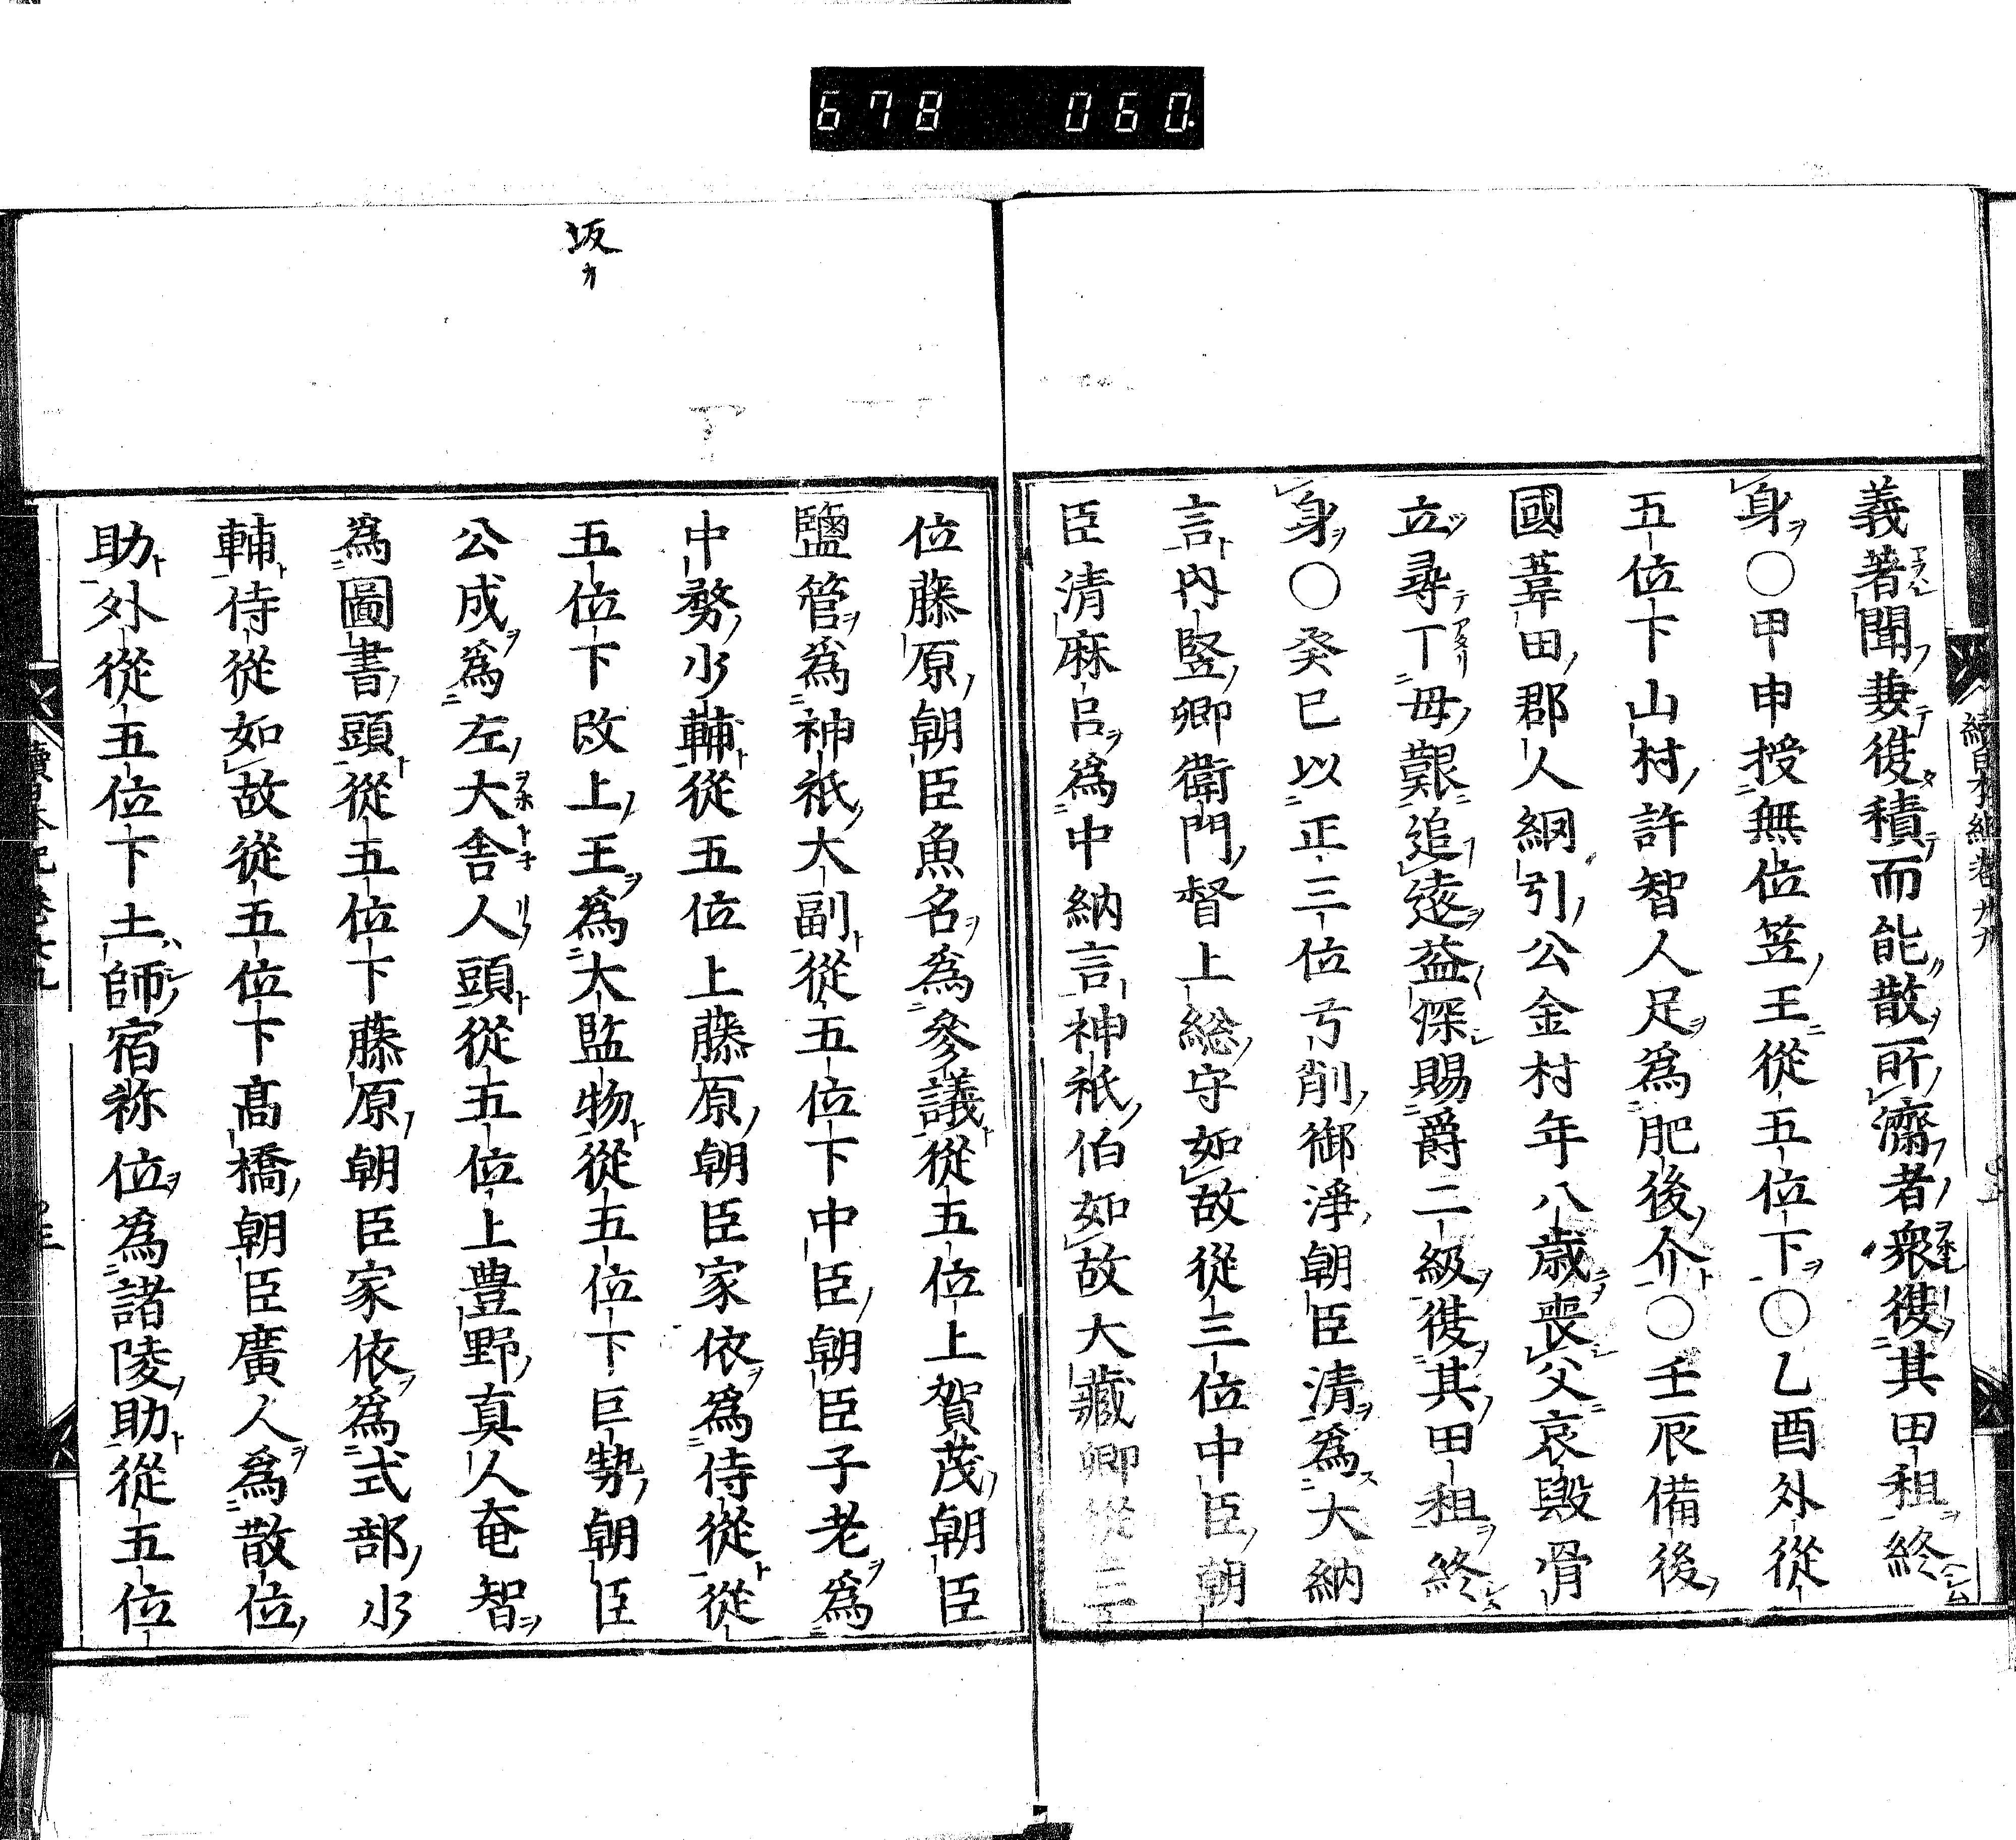 678 060.
續日本紀卷廿九
義著聞妻復積而能散所濟者衆復其田租終
身〇甲申授無位笠王從五位下〇乙酉外從
五位下山村許智人足爲肥後介〇壬辰備後
國葦田郡人網引公金村年八歳喪父哀毀骨
立尋丁母艱追遠益深賜爵二級復其田租終
身〇癸巳以正三位弓削御淨朝臣清爲大納
言内竪卿衛門督上総守如故從三位中臣朝
臣清麻呂爲中納言神祇伯如故大藏卿從三
位藤原朝臣魚名爲參議從五位上賀茂朝臣
鹽管爲神祇大副從五位下中臣朝臣子老爲
中務少輔從五位上藤原朝臣家依爲侍從從
五位下改上王爲大監物從五位下巨勢朝臣
公成爲左大舎人頭從五位上豊野真人奄智
爲圖書頭從五位下藤原朝臣家依爲式部少
輔侍從如故從五位下髙橋朝臣廣人爲散位
助外從五位下土師宿祢位爲諸陵助從五位
坂オ